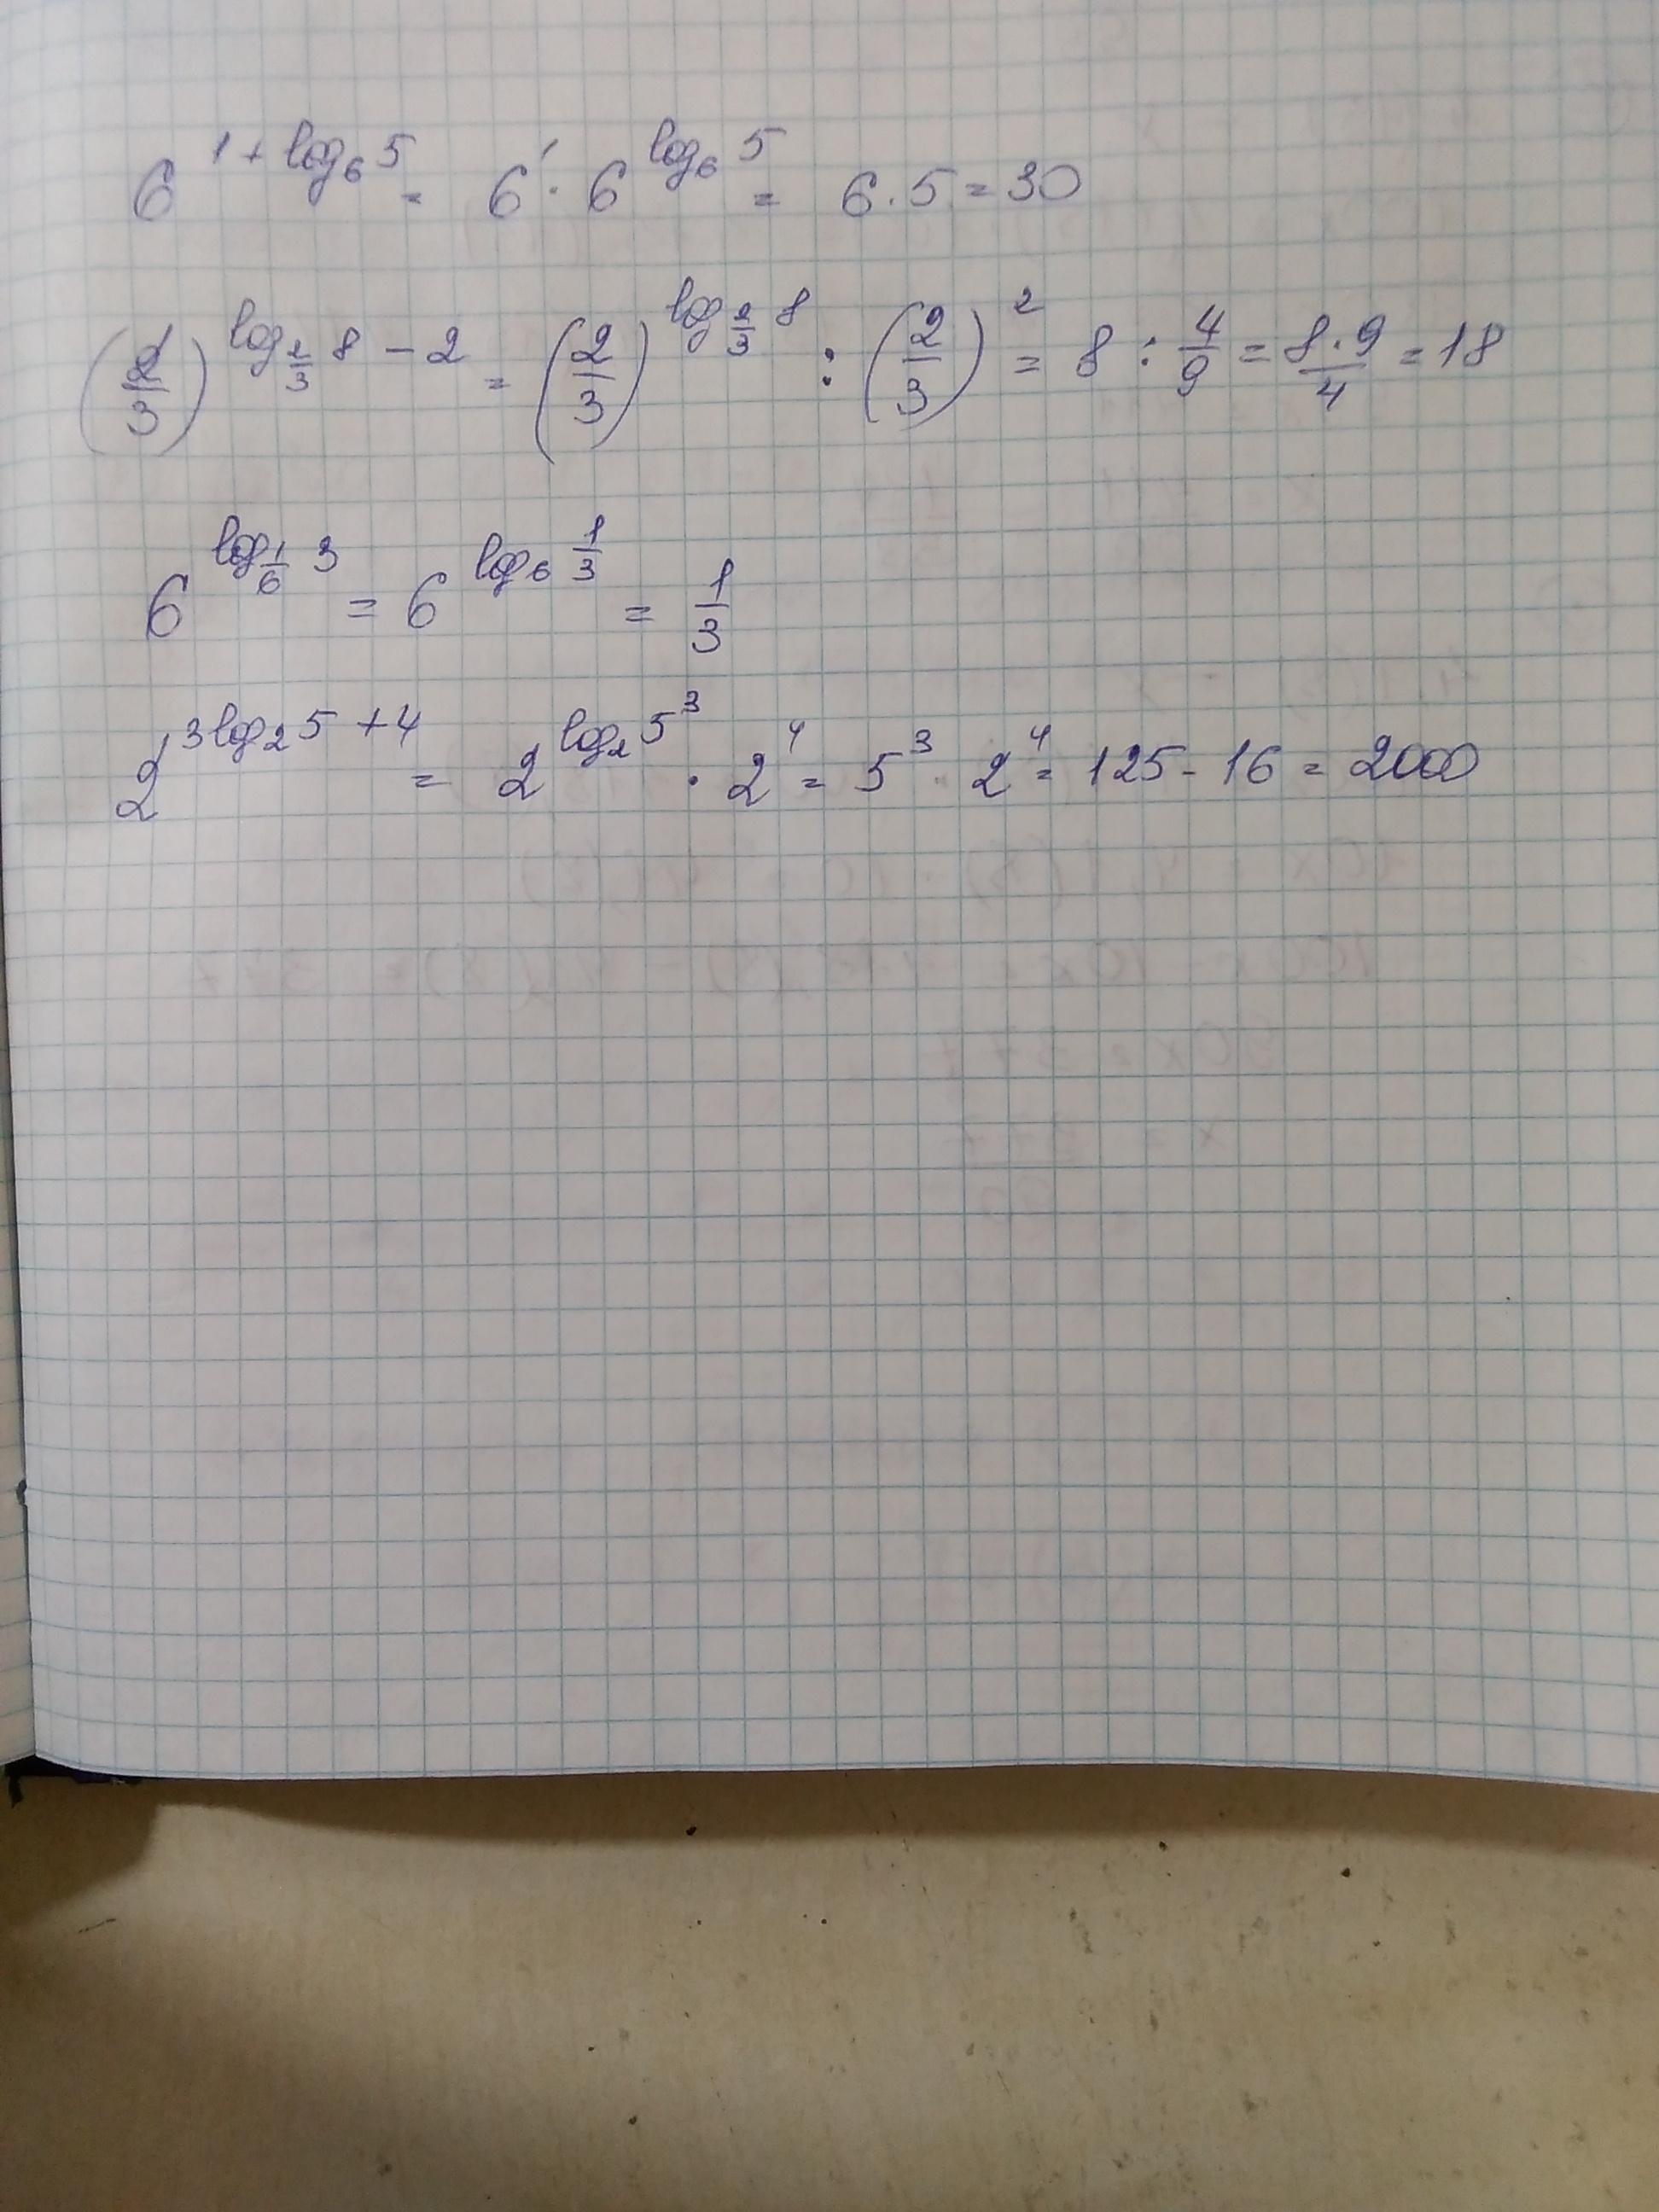 6^{1 + log_6 5} = 6^1 · 6^{log_6 5} = 6 · 5 = 30
(2/3)^{log_{2/3} 8 - 2} = (2/3)^{log_{2/3} 8} : (2/3)^2 = 8 : 4/9 = 8·9/4 = 18
6^{log_{1/6} 3} = 6^{log_6 1/3} = 1/3
2^{3log_2 5 + 4} = 2^{log_2 5^3} · 2^4 = 5^3 · 2^4 = 125 - 16 = 2000